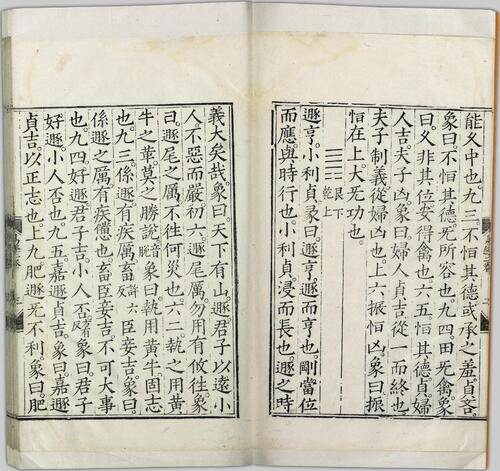 能久中也。九三不恒其德或承之羞貞吝。
象曰。不恒其德。无所容也。九四。田无禽。象
曰。久非其位。安得禽也。六五。恒其德貞。婦
人吉。夫子凶。象曰。婦人貞吉。從一而終也。
夫子制義。從婦凶也。上六。振恒凶。象曰。振
恒在上。大无功也。
艮下
乾上
遯亨。小利貞。彖曰。遯亨。遯而亨也。剛當位
而應。與時行也。小利貞。浸而長也。遯之時
義大矣哉。象曰。天下有山。遯。君子以遠小
人。不惡而嚴。初六。遯尾厲。勿用有攸往。象
曰。遯尾之厲。不往何災也。六二。執之用黃
牛之革。莫之勝說。音脫象曰。執用黃牛。固志
也。九三。係遯。有疾厲。畜許六反臣妾吉。象曰。
係遯之厲。有疾憊也。畜臣妾吉。不可大事
也。九四。好遯。君子吉。小人否。象曰。君子
好遯。小人否也。九五。嘉遯貞吉。象曰。嘉遯
貞吉。以正志也。上九。肥遯。无不利。象曰。肥